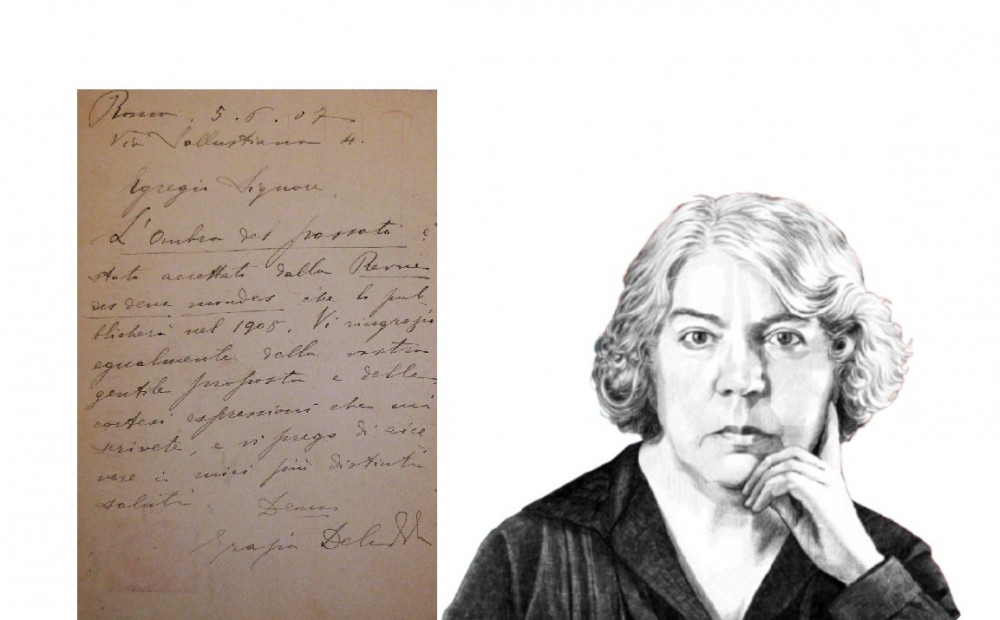 Roma. 5. 6. 07
Via Sallustiana 4.
Egregio Signore,
L'Ombra del passato è
stato accettato dalla Revue
des deux mondes che lo pub-
blicherà nel 1908. Vi ringrazio
egualmente della vostra
gentile proposta e delle
cortesi espressioni che mi
scrivete, e vi prego di rice
vere i miei più distinti
saluti
Devma
Grazia Deledda